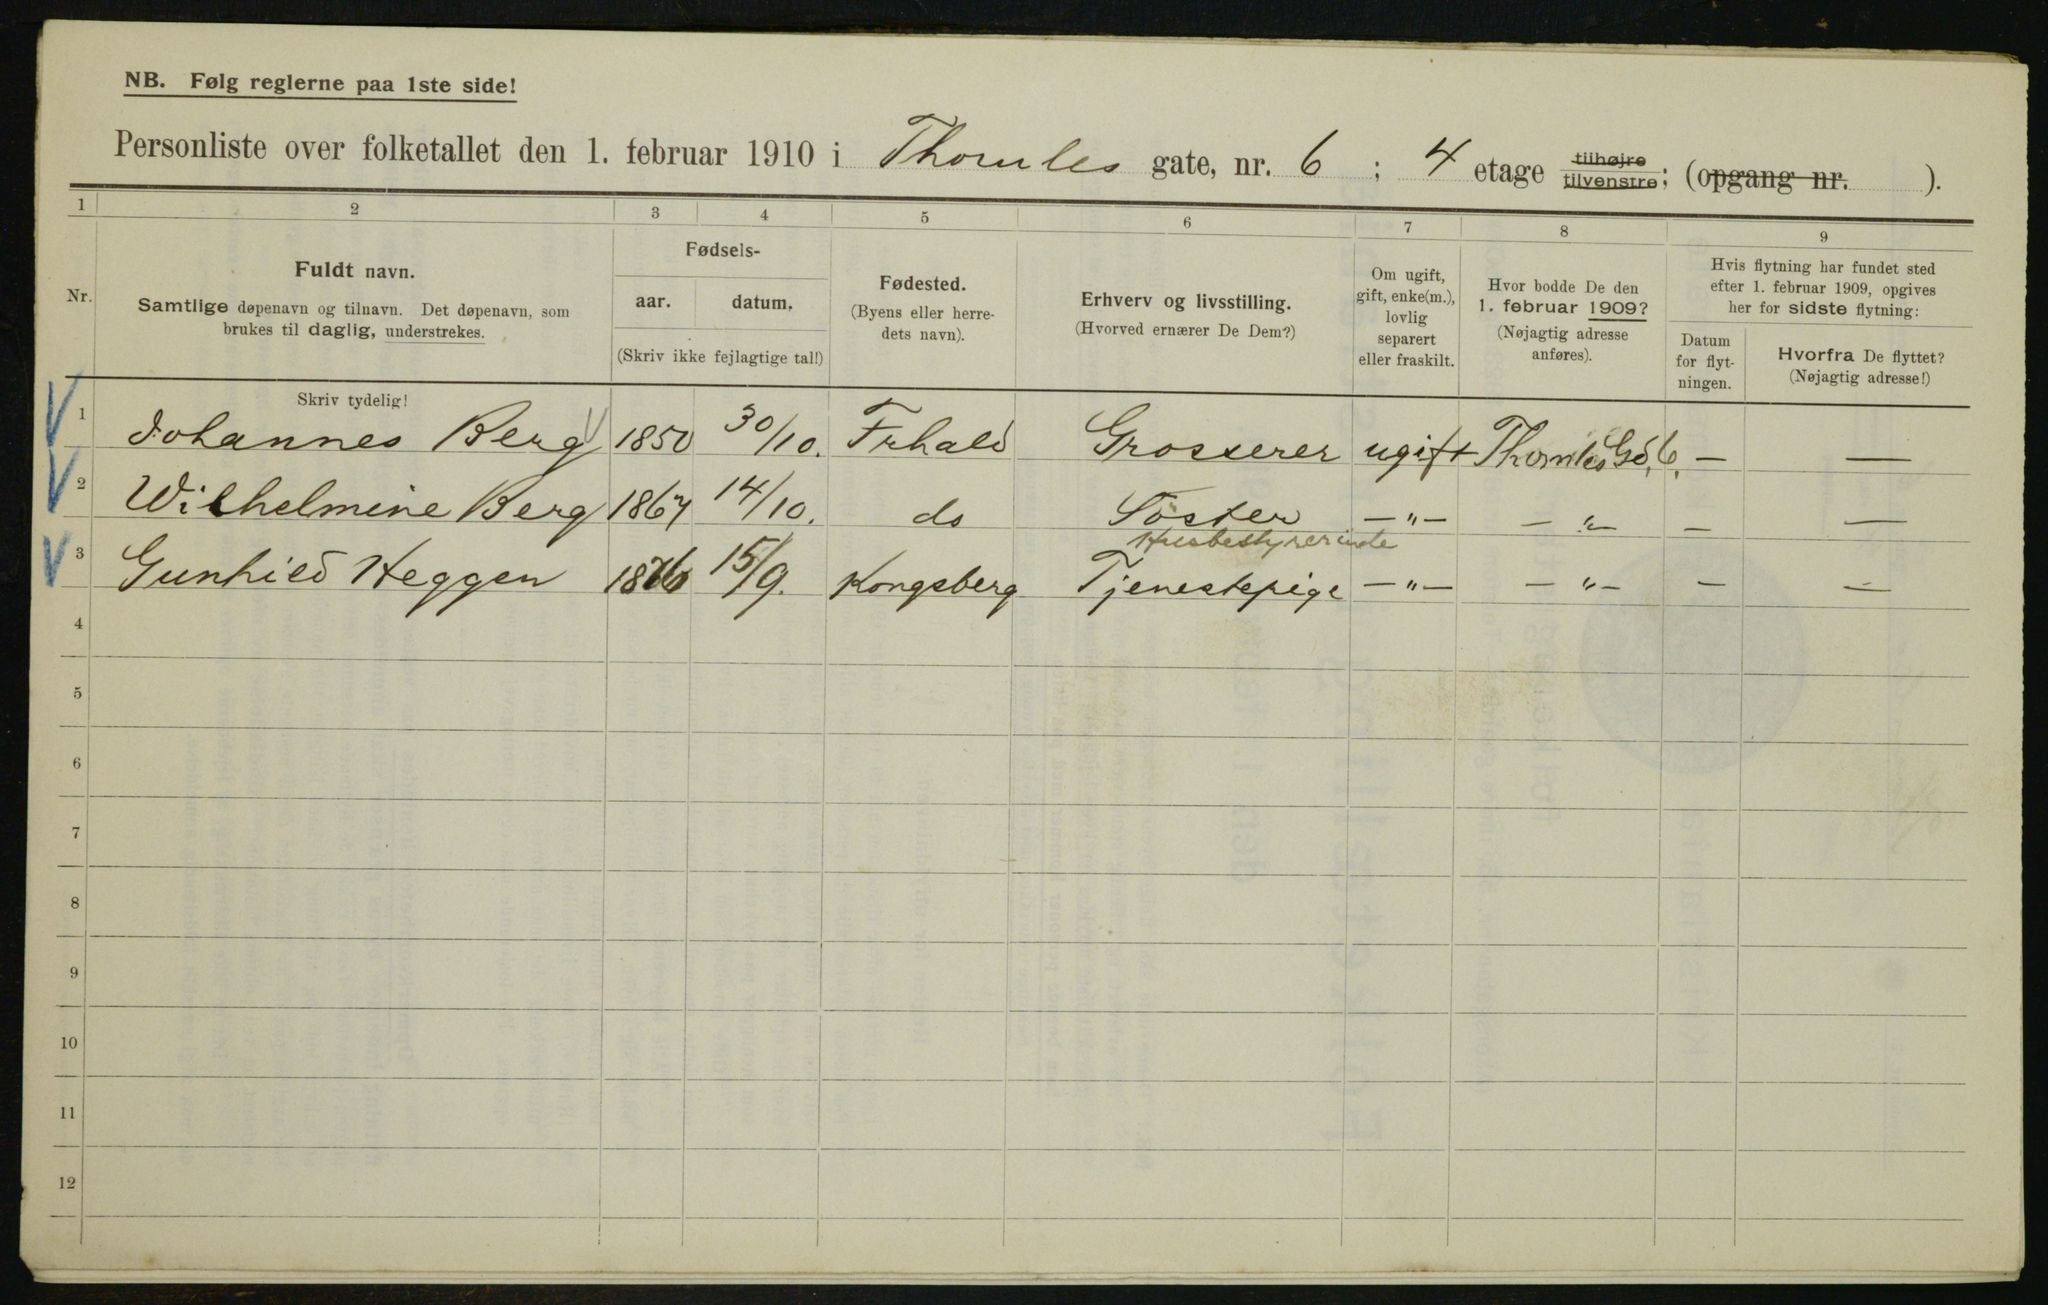 NB. Følg reglerne paa 1ste side!
Personliste over folketallet den 1. februar 1910 i Thomles gate, nr. 6 ; 4 etage tilhøjre tilvenstre; (opgang nr. ).
1 2 3 4 5 6 7 8 9
Nr.
Fuldt navn.
Samtlige døpenavn og tilnavn. Det døpenavn, som
brukes til daglig, understrekes.
Skriv tydelig!
Fødsels-
aar. datum.
(Skriv ikke fejlagtige tal!)
Fødested.
(Byens eller herre-
dets navn).
Erhverv og livsstilling.
(Hvorved ernærer De Dem?)
Om ugift,
gift, enke(m.),
lovlig
separert
eller fraskilt.
Hvor bodde De den
1. februar 1909?
(Nøjagtig adresse
anføres).
Hvis flytning har fundet sted
efter 1. februar 1909, opgives
her for sidste flytning:
Datum
for flyt-
ningen.
Hvorfra De flyttet?
(Nøjagtig adresse!)
1 Johannes Berg 1850 30/10. Frhald Grosserer ugift Thomles Gd. 6. — —
2 Wilhelmine Berg 1867 14/10. do Söster —"— —"— — —
Husbestyrerinde
3 Gunhild Heggen 1876 15/9. Kongsberg Tjenestepige —"— —"— — —
4
5
6
7
8
9
10
11
12